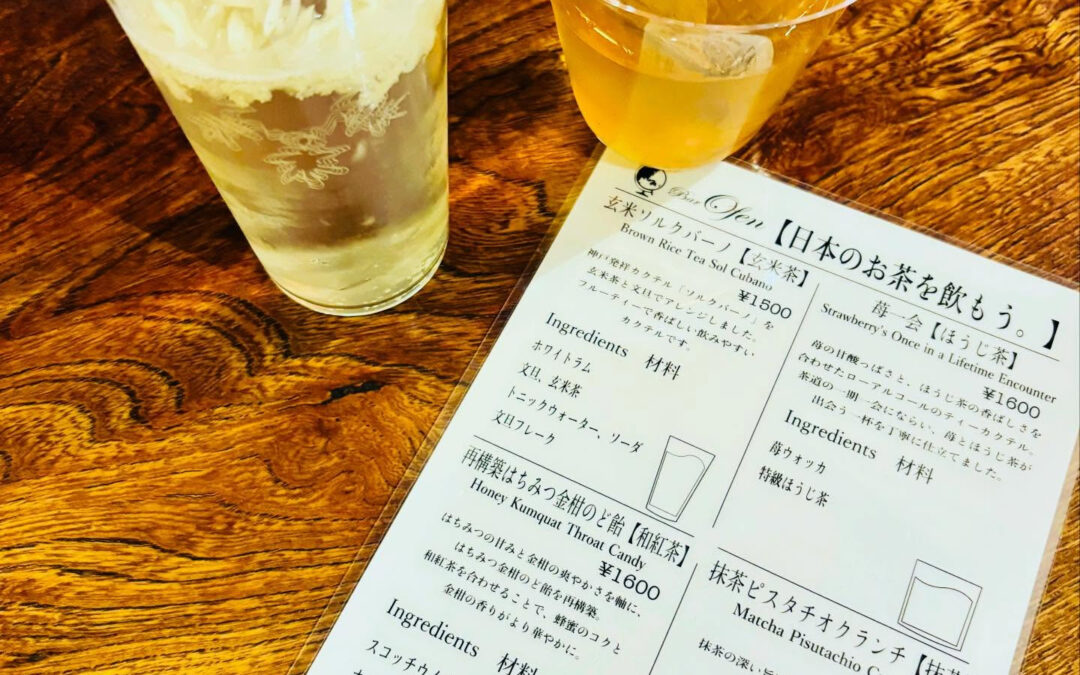 Bar Sen【日本のお茶を飲もう。】
玄米リルクバーノ【玄米茶】
Brown Rice Tea Sol Cubano
¥1500
神戸発祥カクテル「ソルクバーノ」を
玄米茶と文旦でアレンジしました。
フルーティーで香ばしい飲みやすい
カクテルです。
Ingredients 材料
ホワイトラム
文旦、玄米茶
トニックウォーター、ソーダ
文旦フレーク
苺一会【ほうじ茶】
Strawberry's Once in a Lifetime Encounter
¥1600
苺の甘酸っぱさと、ほうじ茶の香ばしさを
合わせたローアルコールのティーカクテル。
茶道の一期一会にならい、苺とほうじ茶が
出会う一杯を丁寧に仕立てました。
Ingredients 材料
苺ウォッカ
特級ほうじ茶
再構築はちみつ金柑のど飴【和紅茶】
Honey Kumquat Throat Candy
¥1600
はちみつの甘みと金柑の爽やかさを軸に、
はちみつ金柑のど飴を再構築。
和紅茶を合わせることで、蜂蜜のコクと
金柑の香りがより華やかに。
Ingredients 材料
スコッチウ
抹茶ピスタチオクランチ【抹茶
Matcha Pisutachio C
抹茶の深い旨